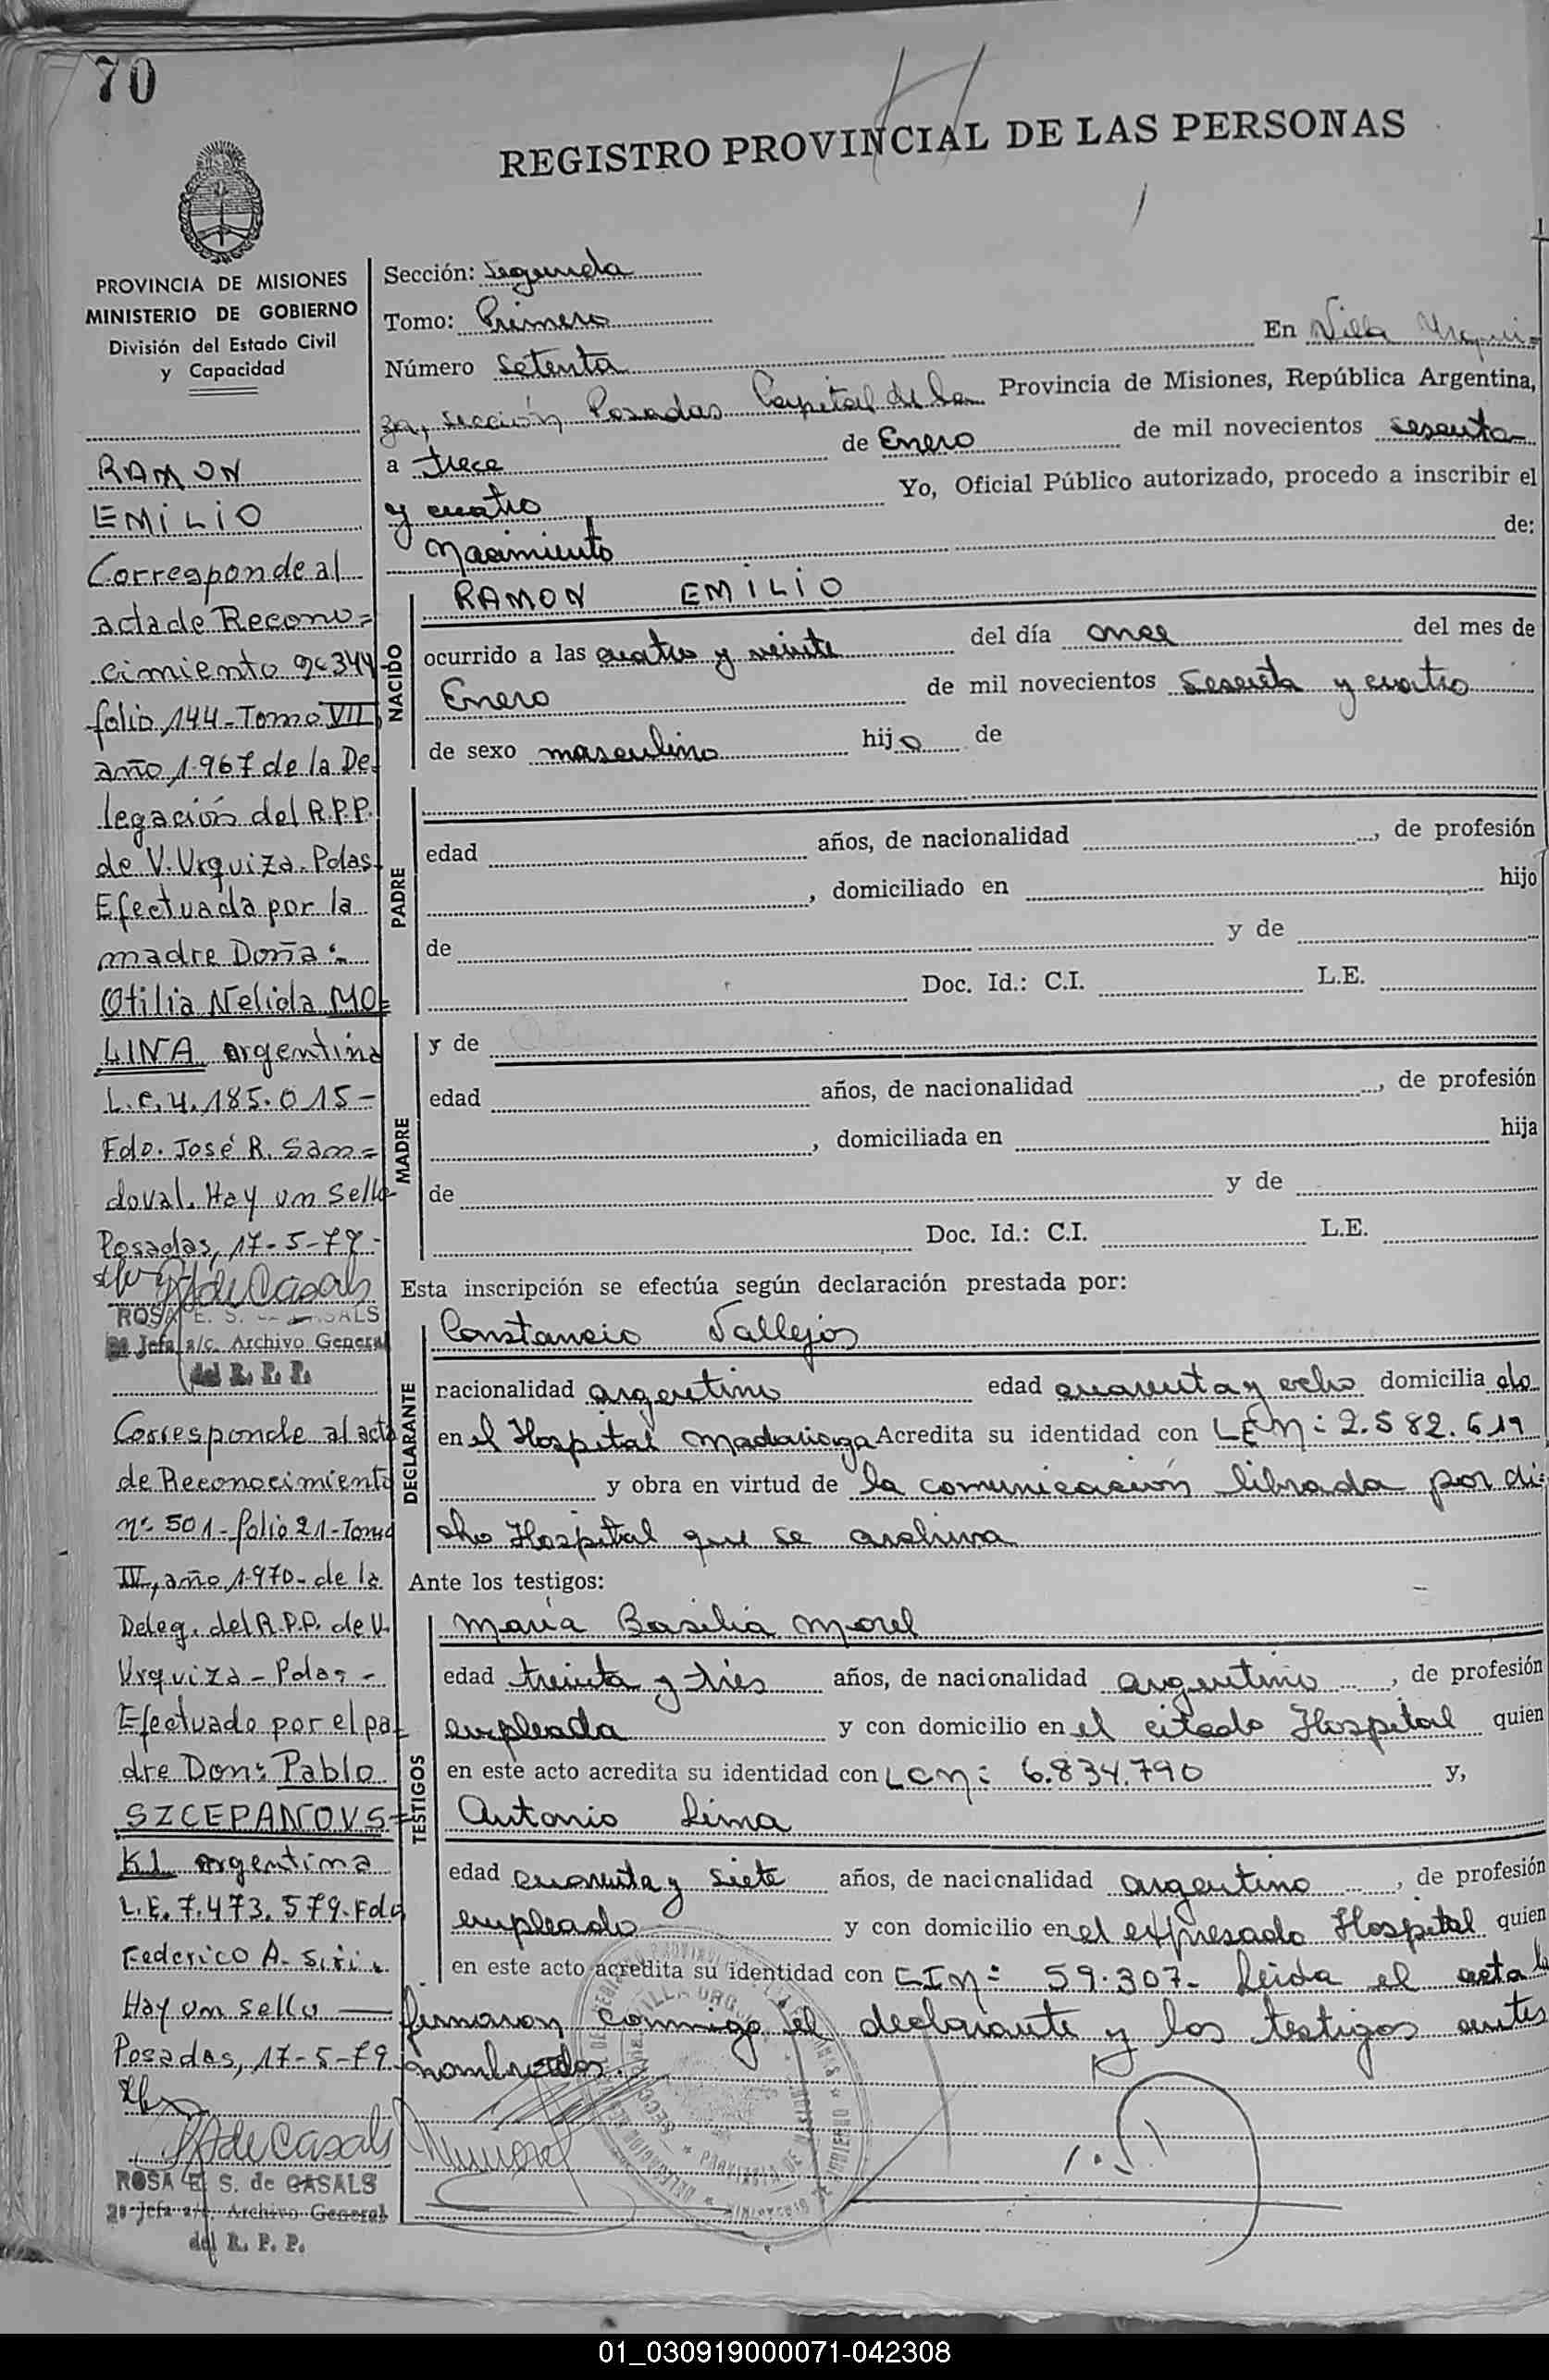 70
REGISTRO PROVINCIAL DE LAS PERSONAS
PROVINCIA DE MISIONES
MINISTERIO DE GOBIERNO
División del Estado Civil
y Capacidad
RAMON
EMILIO
Corresponde al
acta de Recono=
cimiento nº 344
folio 144 - Tomo VII
año 1.967 de la De=
legación del R.P.P.
de V. Urquiza - Pdas.
Efectuada por la
madre Doña:
Otilia Nelida MO=
LINA argentina
L.C. 4.185.015 -
Fdo. José R. San=
doval. Hay un sello
Posadas, 17-5-79-
ROSA E. S. de CASALS
2a Jefa a/c. Archivo General
del R. P. P.
Corresponde al acta
de Reconocimiento
nº 501 - folio 21 - Tomo
IV, año 1.970 - de la
Deleg. del R.P.P. de V.
Urquiza - Pdas -
Efectuado por el pa=
dre Don: Pablo
SZCEPANOVS=
KI argentina
L.E. 7.473.579. Fdo
Federico A. Siri.
Hay un sello
Posadas, 17-5-79.
ROSA E. S. de CASALS
2a Jefa a/c. Archivo General
del R. P. P.
Sección: Segunda
Tomo: Primero
Número Setenta En Villa Urqui=
za, sección Posadas Capital de la Provincia de Misiones, República Argentina,
a trece de Enero de mil novecientos sesenta
y cuatro Yo, Oficial Público autorizado, procedo a inscribir el
Nacimiento de:
NACIDO
RAMON EMILIO
ocurrido a las cuatro y veinte del día once del mes de
Enero de mil novecientos sesenta y cuatro
de sexo masculino hijo de
PADRE
edad años, de nacionalidad , de profesión
, domiciliado en hijo
de y de
Doc. Id.: C.I. L.E.
MADRE
y de
edad años, de nacionalidad , de profesión
, domiciliada en hija
de y de
Doc. Id.: C.I. L.E.
Esta inscripción se efectúa según declaración prestada por:
DECLARANTE
Constancio Vallejos
nacionalidad argentino edad cuarenta y ocho domicilia do
en el Hospital Madariaga Acredita su identidad con LEN: 2.582.619
y obra en virtud de la comunicación librada por di=
cho Hospital que se archiva
Ante los testigos:
TESTIGOS
Maria Basilia Morel
edad treinta y tres años, de nacionalidad argentino , de profesión
empleada y con domicilio en el citado Hospital quien
en este acto acredita su identidad con LCN: 6.834.790 y,
Antonio Lima
edad cuarenta y siete años, de nacionalidad argentino , de profesión
empleado y con domicilio en el expresado Hospital quien
en este acto acredita su identidad con CIN: 59.307- Leida el acta la
firmaron conmigo el declarante y los testigos antes
nombrados.
01_030919000071-042308